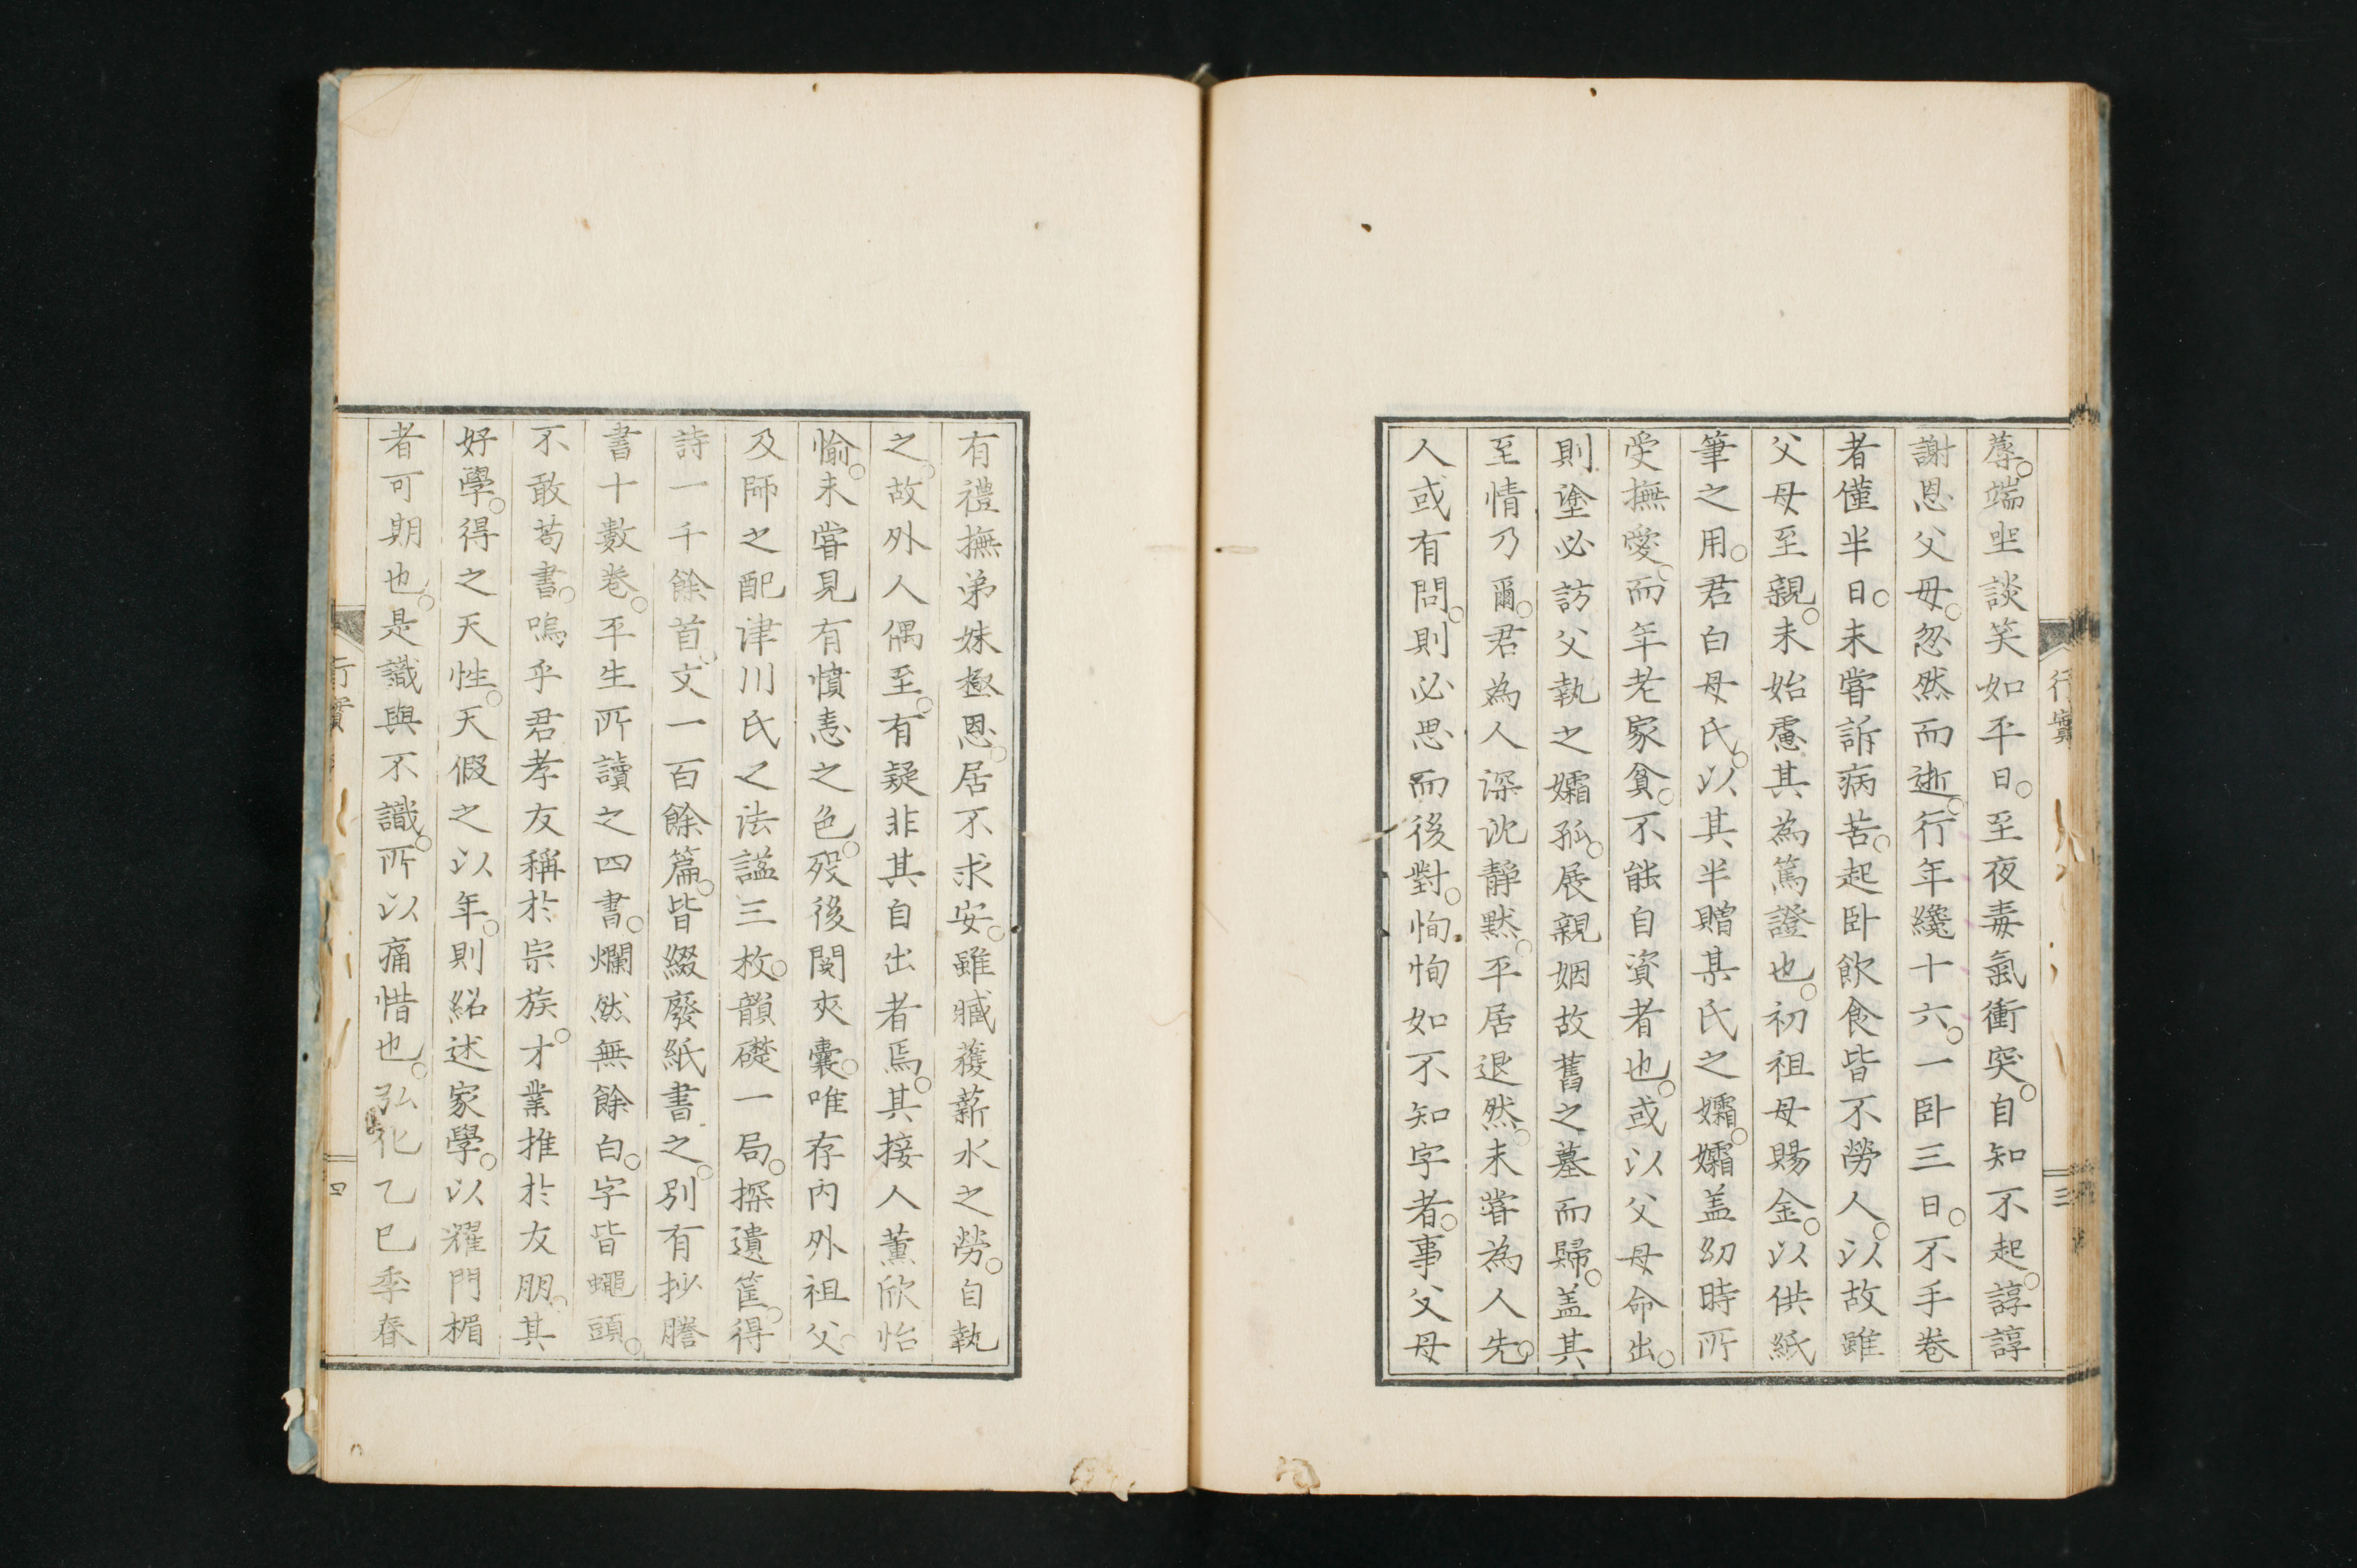 蓐。端坐談笑如平日。至夜毒氣衝突。自知不起。諄諄
謝恩父母。忽然而逝。行年纔十六。一臥三日。不手卷
者僅半日。未嘗訴病苦。起臥飲食皆不勞人。以故雖
父母至親。未始慮其為篤證也。初祖母賜金。以供紙
筆之用。君白母氏。以其半贈某氏之孀。孀盖幼時所
受撫愛。而年老家貧。不能自資者也。或以父母命出。
則塗必訪父執之孀孤。展親姻故舊之墓而歸。盖其
至情乃爾。君為人深沈靜默。平居退然。未嘗為人先。
人或有問。則必思而後對。恂恂如不知字者。事父母
行實
三
有禮撫弟妹極恩。居不求安。雖臧獲薪水之勞。自執
之。故外人偶至。有疑非其自出者焉。其接人薰欣怡
愉。未嘗見有憤恚之色。歿後閱夾囊。唯存內外祖父
及師之配津川氏之法諡三枚。韻礎一局。探遺筐。得
詩一千餘首。文一百餘篇。皆綴廢紙書之。別有抄謄
書十數卷。平生所讀之四書。爛然無餘白。字皆蠅頭。
不敢苟書。嗚乎君孝友稱於宗族。才業推於友朋。其
好學。得之天性。天假之以年。則紹述家學。以耀門楣
者可期也。是識與不識。所以痛惜也。弘化乙巳季春
行實
四